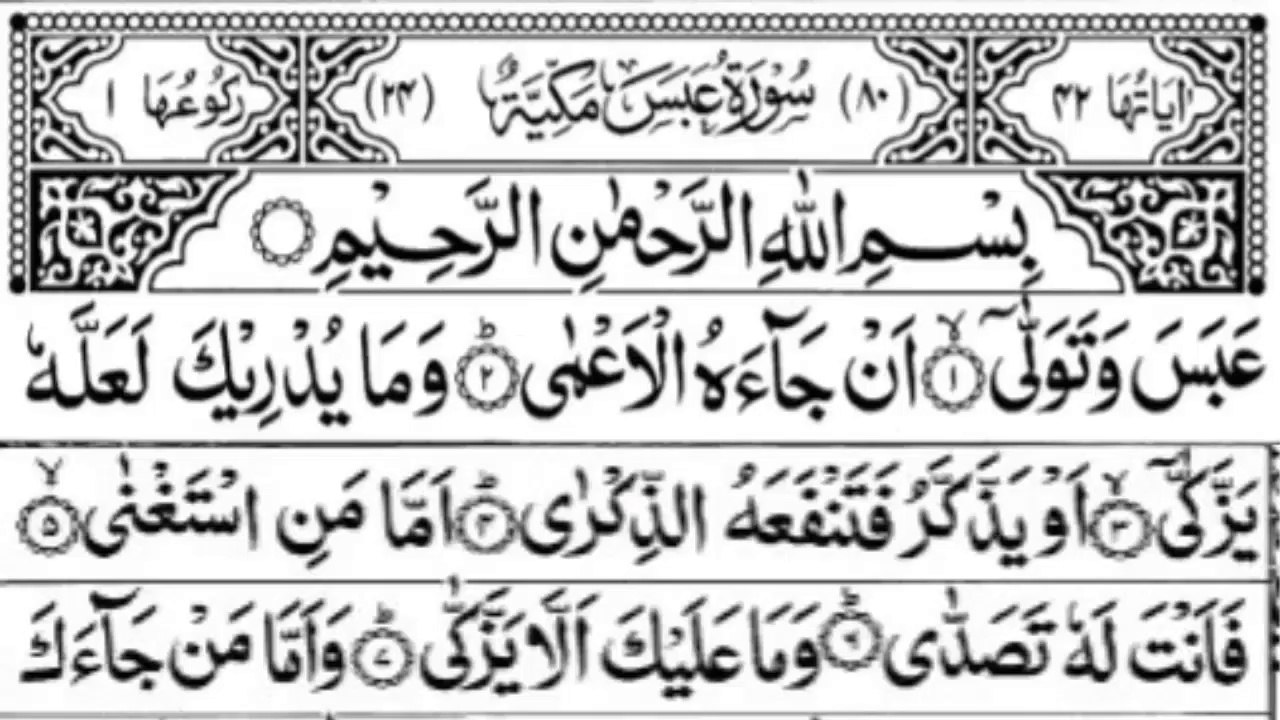 اٰيَاتُهَا ۴۲ (۸۰) سُوْرَةُ عَبَسَ مَكِّيَّةٌ (۲۴) رُكُوْعُهَا ۱
بِسْمِ اللّٰهِ الرَّحْمٰنِ الرَّحِيْمِ ۝
عَبَسَ وَتَوَلّٰٓى ۙ﴿۱﴾ اَنْ جَآءَهُ الْاَعْمٰى ؕ﴿۲﴾ وَمَا يُدْرِيْكَ لَعَلَّهٗ
يَزَّكّٰٓى ۙ﴿۳﴾ اَوْ يَذَّكَّرُ فَتَنْفَعَهُ الذِّكْرٰى ؕ﴿۴﴾ اَمَّا مَنِ اسْتَغْنٰى ۙ﴿۵﴾
فَاَنْتَ لَهٗ تَصَدّٰى ؕ﴿۶﴾ وَمَا عَلَيْكَ اَلَّا يَزَّكّٰى ؕ﴿۷﴾ وَاَمَّا مَنْ جَآءَكَ